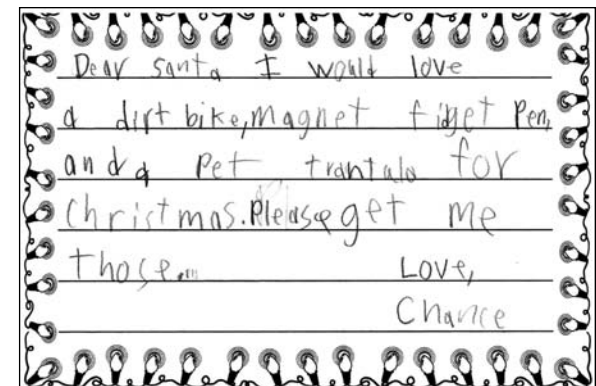 Dear santa I would love
a dirt bike, magnet fidget Pen,
and a Pet trantala for
christmas. Please get me
those...
Love,
Chance